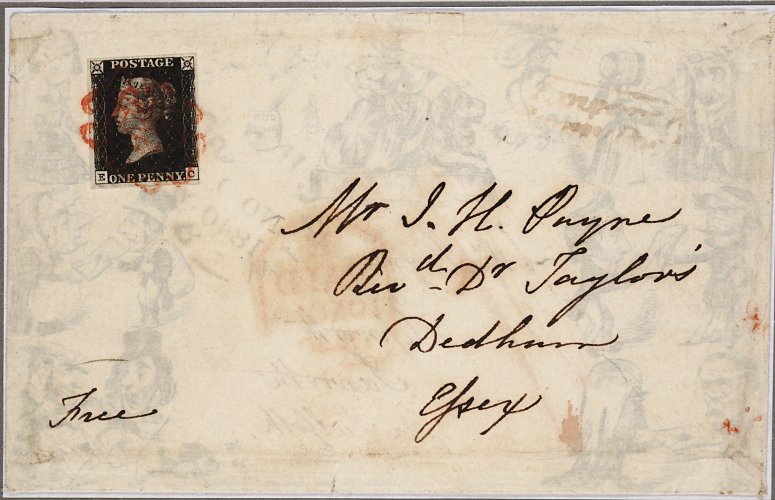 POSTAGE
ONE PENNY
E C
Mr J. H. Payne
Revd Dr Taylor's
Dedham
Essex
Free